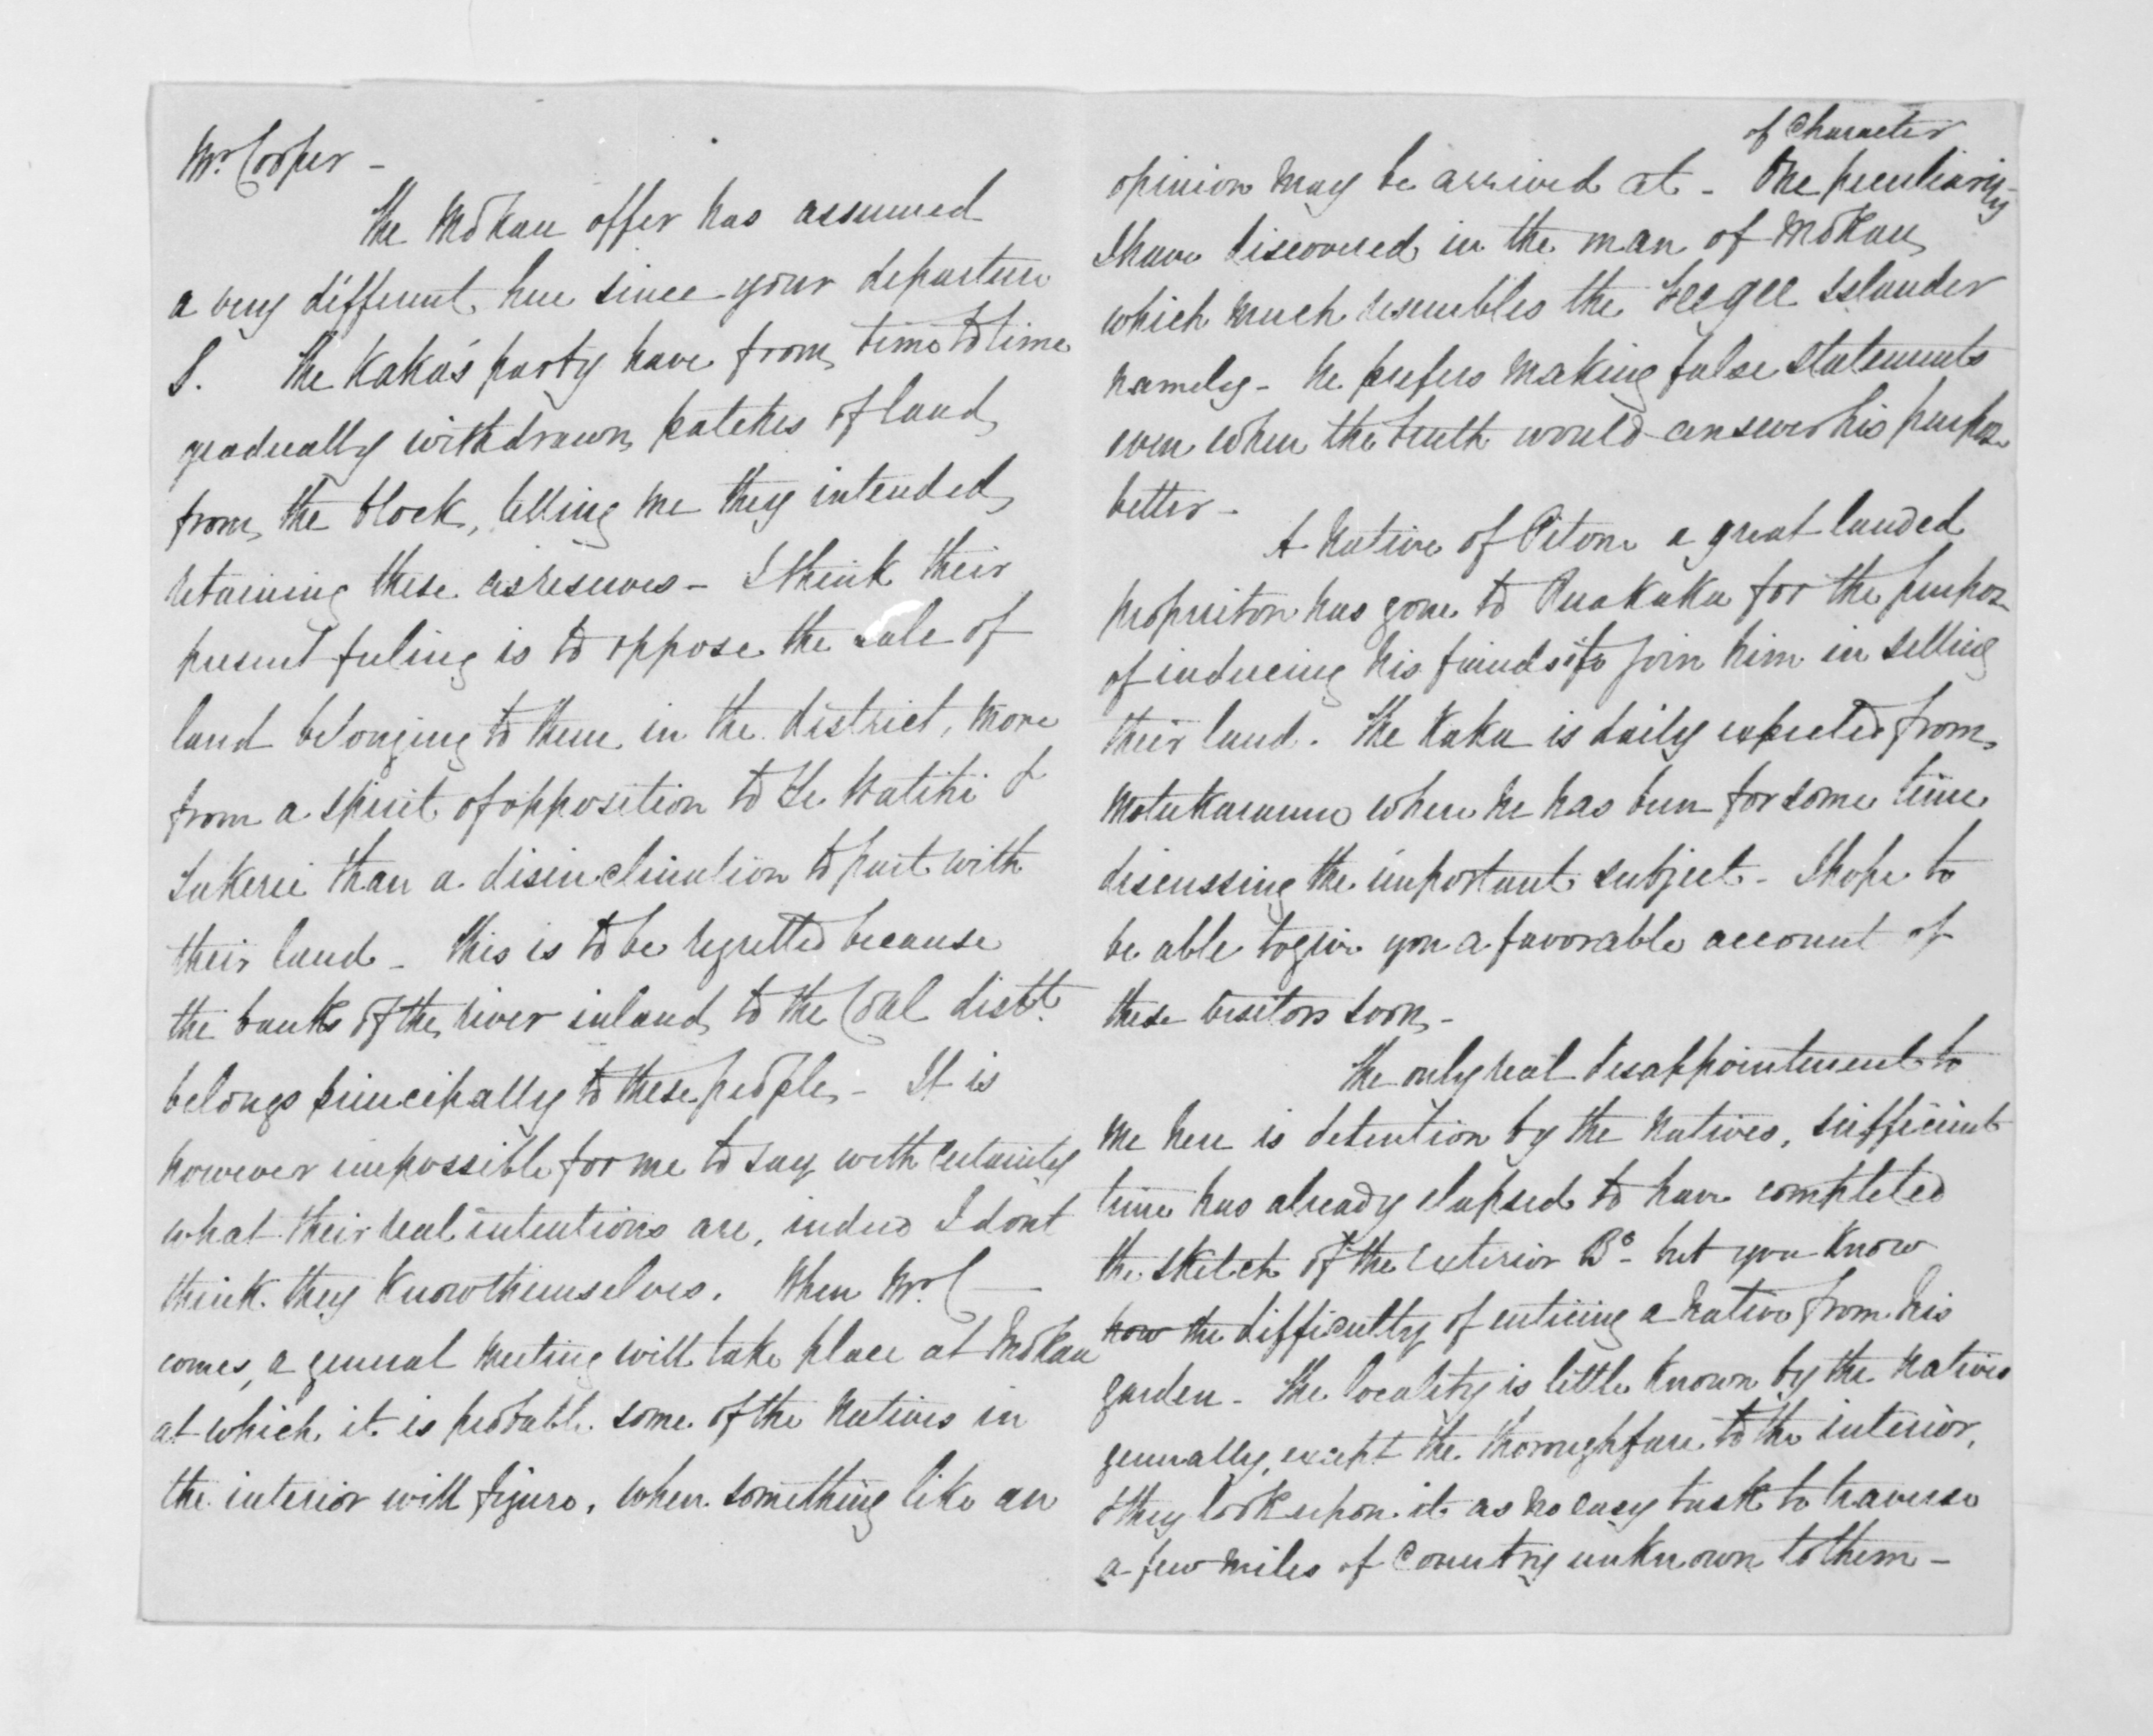 Mr. Cooper -
The Mokau offer has assumed
a very different hue since your departure
S. The Kaka's party have from time to time
gradually withdrawn patches of land
from the block, telling me they intended
retaining these as reserves - I think their
present feeling is to oppose the sale of
land belonging to them in the district, more
from a spirit of opposition to Te Watihi &
Takerei than a disinclination to part with
their land - This is to be regretted because
the banks of the river inland to the Coal distt.
belongs principally to these people - It is
however impossible for me to say with certainty
what their real intentions are, indeed I dont
think they know themselves. When Mr. C—
comes, a general meeting will take place at Mokau
at which it is probable some of the Natives in
the interior will figure, when something like an
of Character
opinion may be arrived at - One peculiarity
I have discovered in the man of Mokau
which much resembles the Feegee Islander
namely - he prefers making false statements
even when the truth would answer his purpose
better -
A Native of Petone a great landed
proprietor has gone to Ruakaka for the purpose
of inducing his friends to join him in selling
their land. The Kaka is daily expected from
Motukaramu where he has been for some time
discussing the important subject - I hope to
be able to give you a favorable account of
these visitors soon -
The only real disappointment to
me here is detention by the Natives, sufficient
time has already elapsed to have completed
the sketch of the exterior Bo - but you know
how the difficulty of enticing a Native from his
garden - The locality is little known by the Natives
generally, except the thoroughfare to the interior,
& they look upon it as no easy task to traverse
a few miles of Country unknown to them -